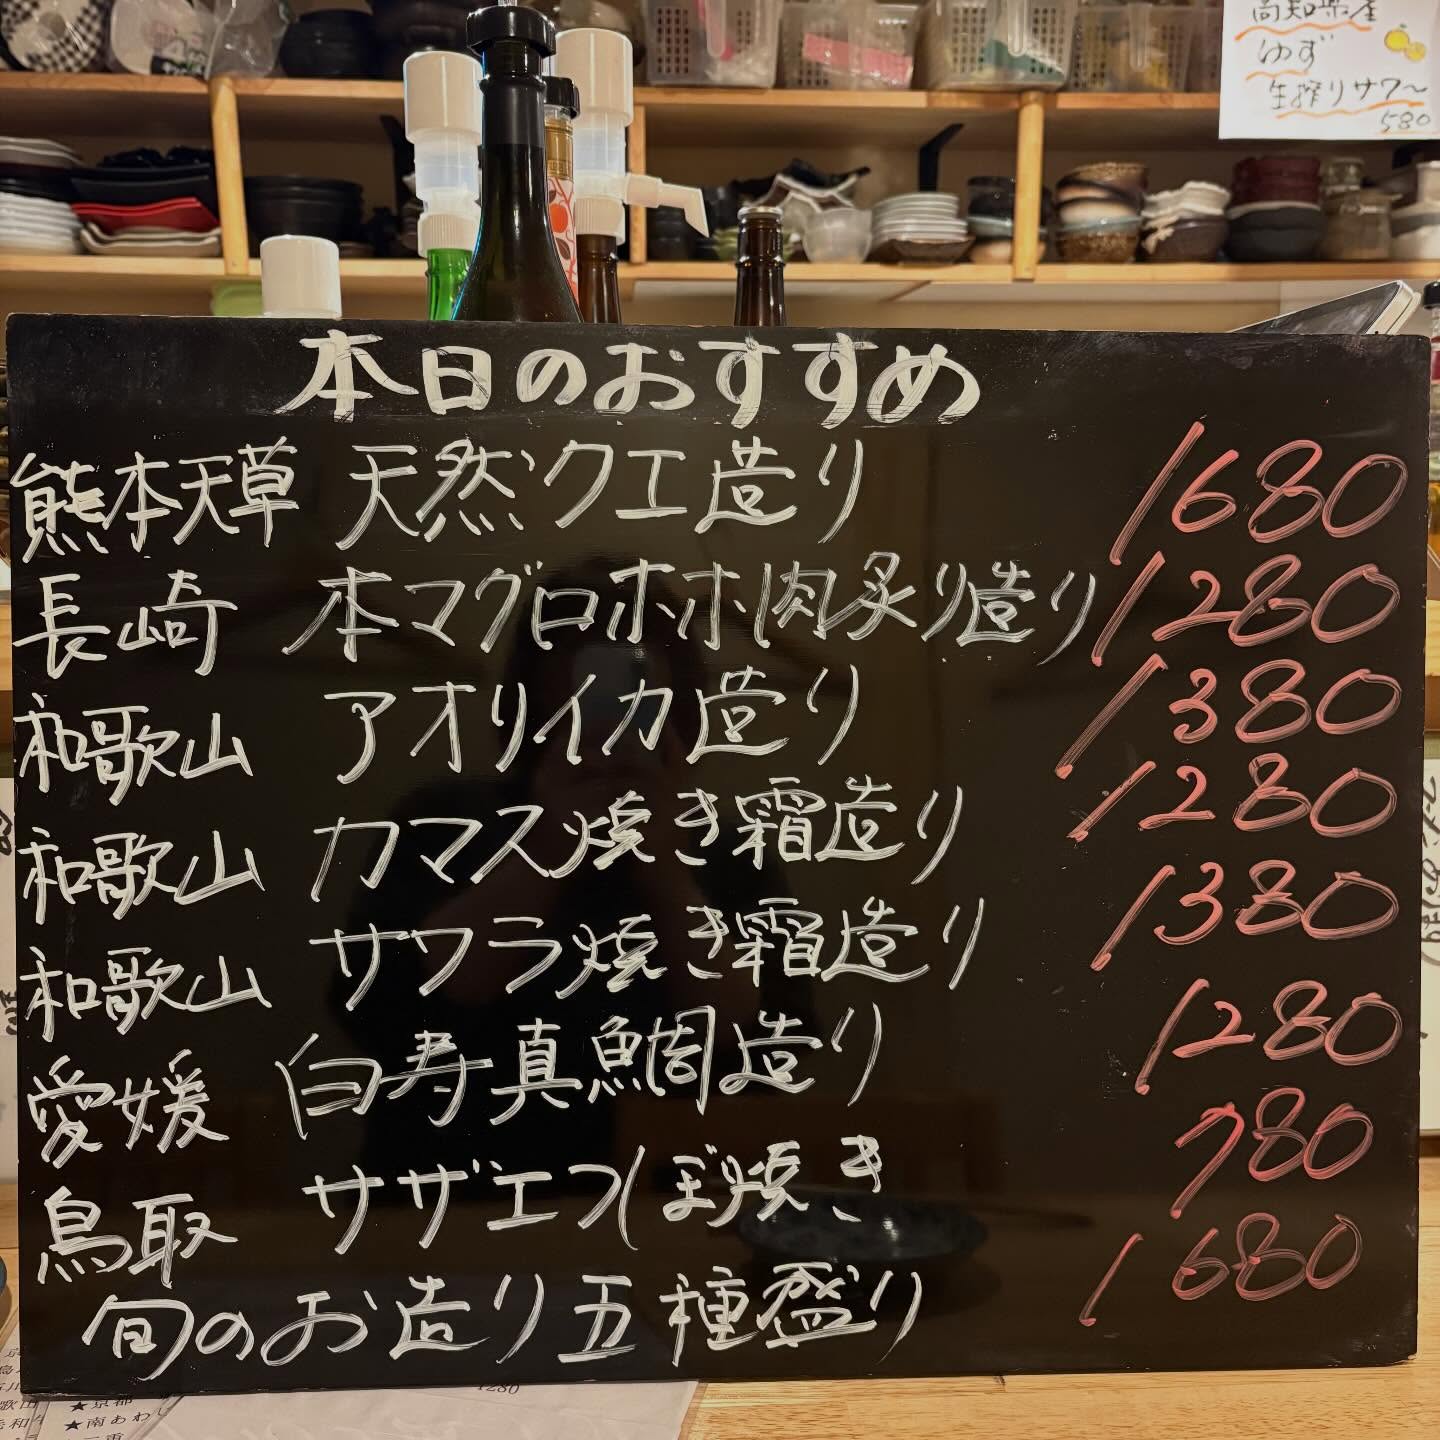 高知県産
ゆず
生搾りサワ〜
580
本日のおすすめ
熊本天草 天然クエ造り 1680
長崎 本マグロホホ肉炙り造り 1280
和歌山 アオリイカ造り 1380
和歌山 カマス焼き霜造り 1280
和歌山 サワラ焼き霜造り 1380
愛媛 白寿真鯛造り 1280
鳥取 サザエつぼ焼き 780
旬のお造り五種盛り 1680
1280
★京都
★南あわ